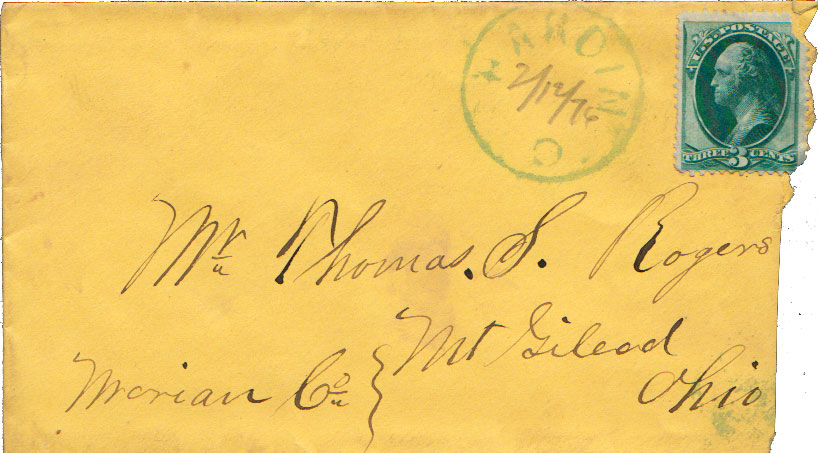 HARDIN O
2/12/76
U.S. POSTAGE
THREE 3 CENTS
Mr Thomas. S. Rogers
Mt Gilead
Morian Co
Ohio